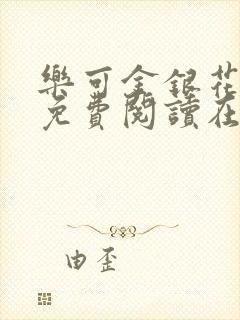 樂可金銀花
免費閱讀在
由歪